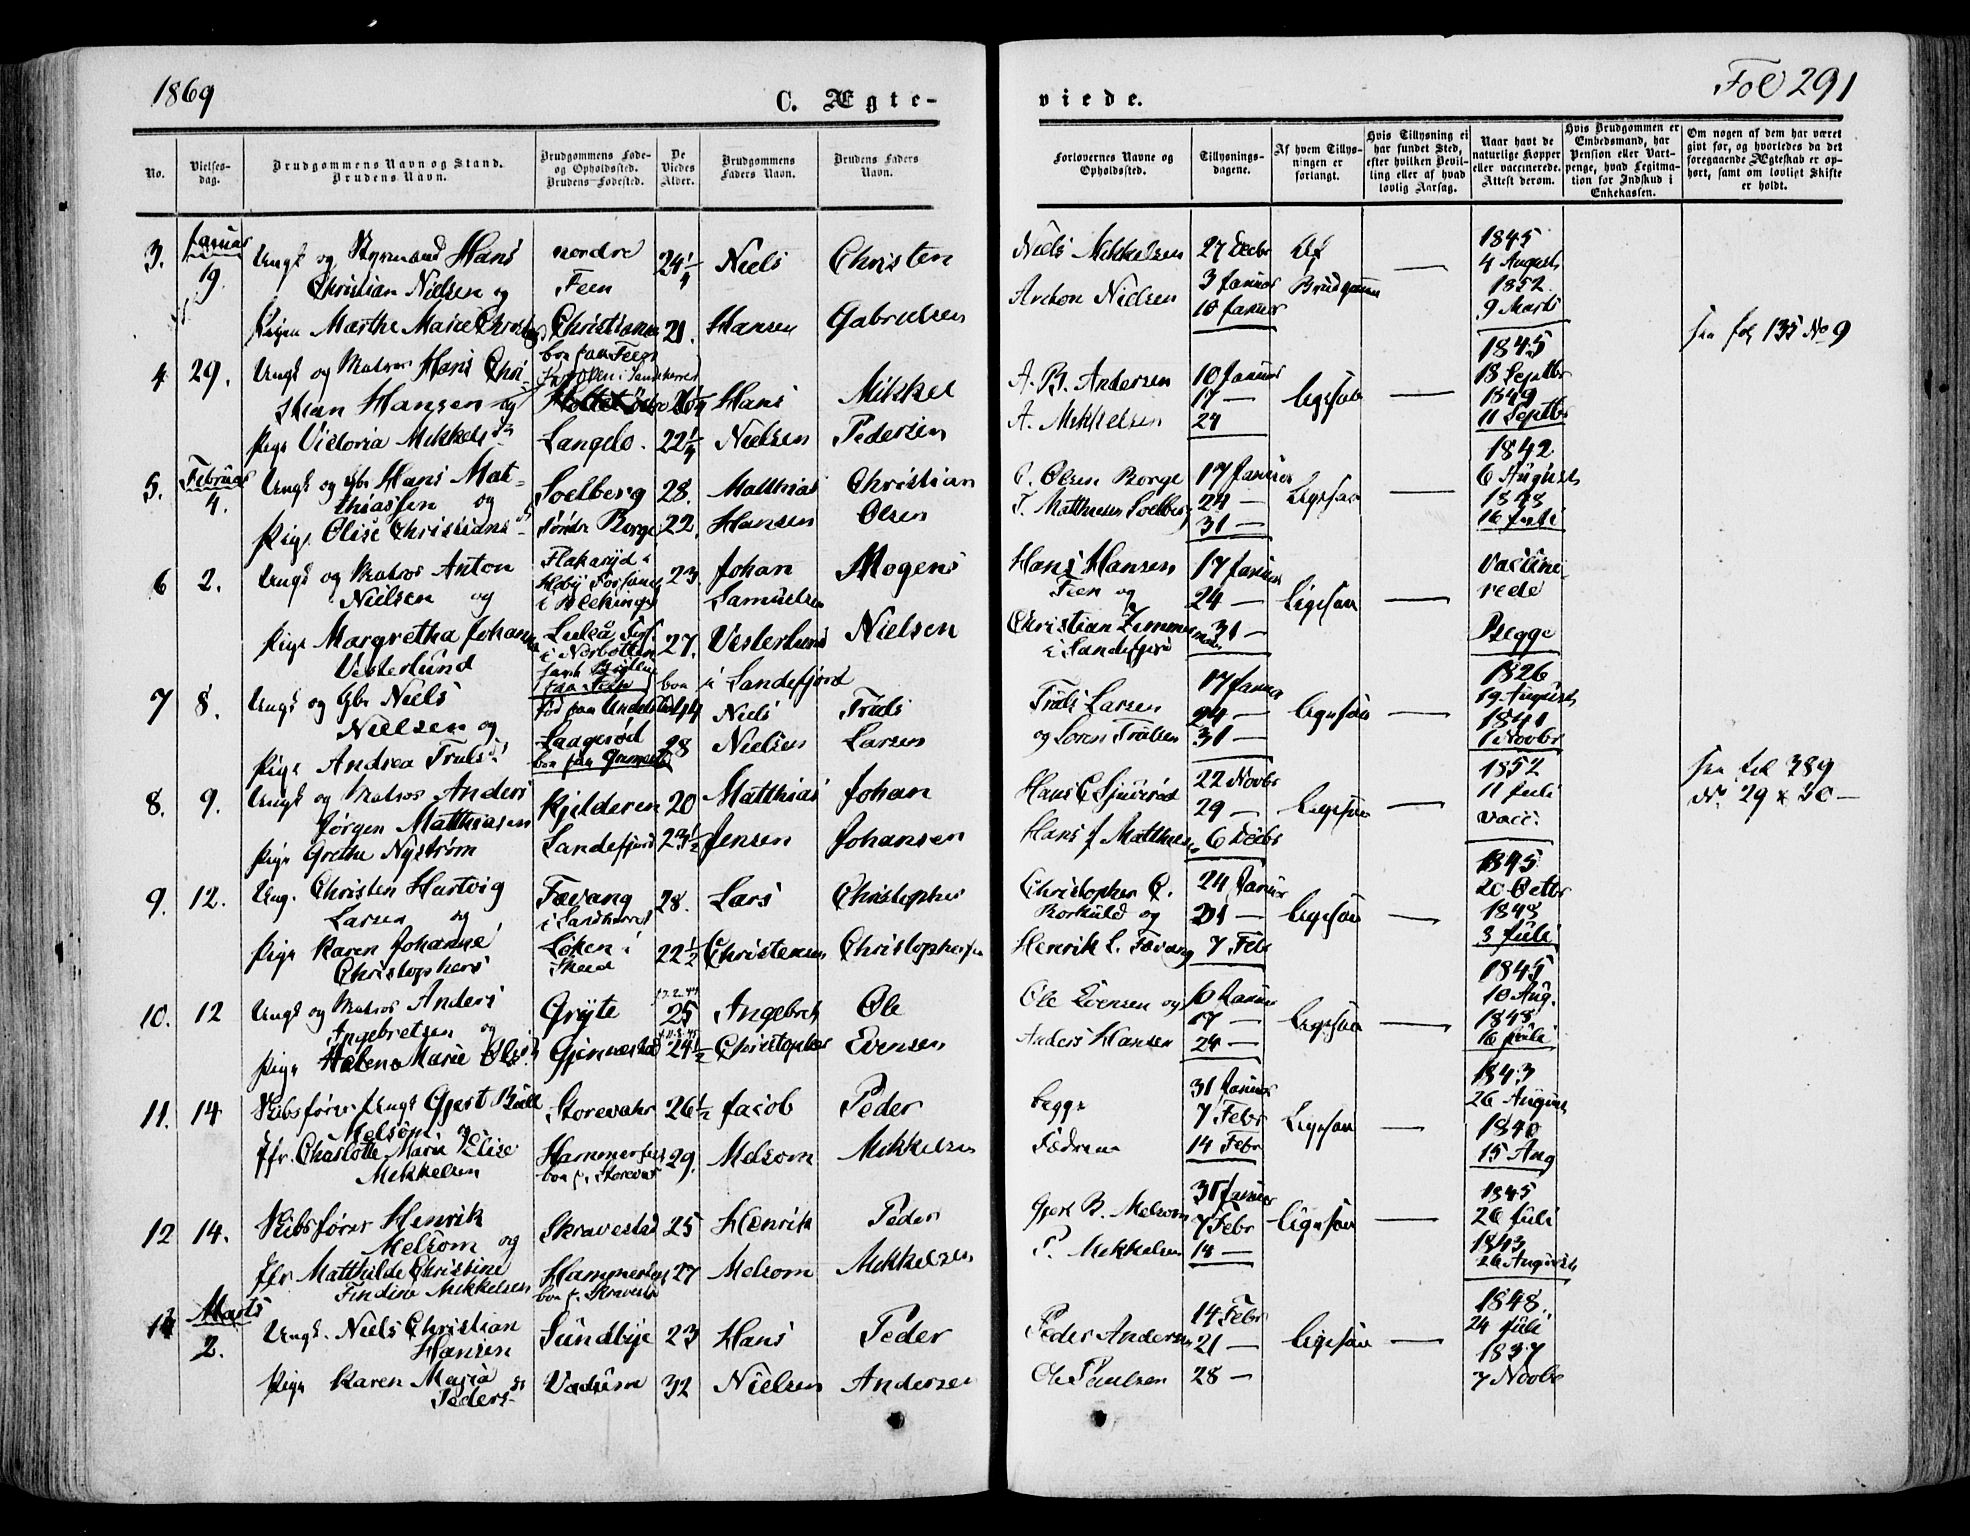 1869
C. Ægte-
viede.
Fol 291
No.
Vielses-
dag.
Brudgommens Navn og Stand.
Brudens Navn.
Brudgommens Føde-
og Opholdssted.
Brudens Fødested.
De
Viedes
Alder.
Brudgommens
Faders Navn.
Brudens Faders
Navn.
Forlovernes Navne og
Opholdssted.
Tillysnings-
dagene.
Af hvem Tillys-
ningen er
forlangt.
Hvis Tillysning ei
har fundet Sted,
efter hvilken Bevil-
ling eller af hvad
lovlig Aarsag.
Naar havt de
naturlige Kopper
eller vaccinerede.
Attest derom.
Hvis Brudgommen er
Embedsmand, har
Pension eller Vart-
penge, hvad Legitma-
tion for Indskud i
Enkekassen.
Om nogen af dem har været
givt før, og hvorledes da det
foregaaende Ægteskab er op-
hørt, samt om lovligt Skifte
er holdt.
3. Januar 19. Ungk og Styrmand Hans nordre 24 1/4 Niels Christen Niels Mikkelsen 27 Decbr Af — 1845
Christian Nielsen og Feen Anthon Nielsen 3 Januar Brudgommen 4 August
10 Januar 1852
Pigen Marthe Marie 21. Hansen Gabrielsen 9 Marts
boe paa Feen fol 135 No 9
4 29. Ungk og Matros Hans Chri- 26 1/4 Hans Mikkel A. B. Andersen 10 Januar ligesaa — 1845
stian Hansen og 17 — 18 Septbr
1849
Pige Victoria Mikkelsd Langelo. 22 1/4 Nielsen Pedersen A. Mikkelsen 24 11 Septbr
5. Februar 4. Ungk og Gbr Hans Mat- Soelberg 28. Matthias Christian C. Olsen Borge 17 Januar Ligesaa — 1842
thiassen og 24 — 6 August
1848
Pige Olise Christians Søndre Borge 22. Hansen Olsen Soelberg 31 — 16 Juli
6 2. Ungk og Matros Anton 23. Johan Mogens Hans Hansen 17 Januar Ligesaa — Vaccine-
Nielsen og i Blekinge Samuelsen Feen og 24 — rede
Pige Margretha Johanna Luleå 27. Vesterlund Nielsen Christian 31 — Begge
Vesterlund i Norbotten i Sandefjord
boe i Sandefjord
7 8. Ungk og Gbr Niels 44 Niels Truls Truls Larsen 17 Januar ligesaa — 1826
Nielsen og 24 — 19 August
1841
Pige Andrea Trulsd. 28 Nielsen Larsen og Soren Trulsen 31 — 1 Novbr
8. 9. Ungk og Matros Anders Kjilderen 20 Matthias Johan 22 Novbr Ligesaa — 1852 fol 389
Jørgen Matthiasen 29 — 11 Juli No 29 & 30 —
Pige Grethe Nystrøm Sandefjord 23 1/2 Jensen Johansen 6 Decbr vacc.
9. 12. Ung. Christen Hartvig Fævang 28. Lars Christopher Christopher C. 24 Januar ligesaa — 1845
Larsen og i Sandeherred og 31 — 20 Octbr
1848
Pige Karen Johanne Løken i 22 1/2 Christensen Christophersen Henrik L. Fævang 7 Feb 3 Juli
Christophers
10. 12 Ungk og Matros Anders Gryte 25 Ole Ole Evensen og 10 Januar ligesaa — 1845
Ingebretsen og 17 — 10 Aug.
1848
Pige Helene Marie Olsd. Gjennestad 24 1/2 Christopher Evensen Anders Hansen 24 — 16 Juli
11. 14 Skibsfører Ungk Gjert Storevahr 26 1/2 Jacob Peder begge 31 Januar Ligesaa — 1843
Melsom og 7 Febr 26 August
1840
Jfr. Charlotte Marie Elise Hammerfest 29. Melsom Mikkelsen Fædrene 14 Febr 15 Aug
Mikkelsen
12 14. Skibsfører Henrik Skravestad 25 Henrik Peder Gjert B. Melsom 31 Januar ligesaa — 1845
Melsom og 7 Febr 26 Juli
1843
Jfr Matthilde Christine Hammerfest 27 Melsom Mikkelsen P. Mikkelsen 14 — 26 August
Findine Mikkelsen boe p. Skravestad
14 Marts 2. Ungk. Niels Christian Sundbye 23 Hans Peder Peder Andersen 14 Febr ligesaa — 1848.
Hansen 21 — 24 Juli
1837
Pige Karen Maria 32 Nielsen Andersen Ole Paulsen 28 — 7 Novbr
Peders-